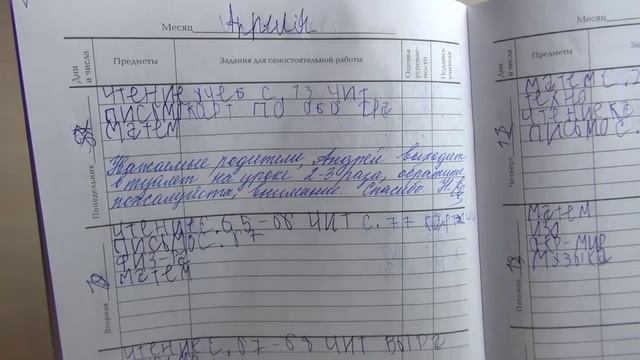 Месяц Апрель
Дни и числа Предметы Задания для самостоятельной работы Оценка успеваемости Подпись учителя
Понедельник
чтение учеб с. 73 чит
письмо карт по обо
матем
Уважаемые родители, Андрей выходит
в туалет на уроке 2-3 раза, обратите,
пожалуйста, внимание. Спасибо.
Вторник
чтение с. 65-68 чит с. 77
письмо с. 87
физ-ра
матем
чтение с. 67-68 чит
Месяц
Дни и числа Предметы
Четверг
матем с.
техно
чтение
письмо с.
Пятница
матем
изо
окр-мир
музыка